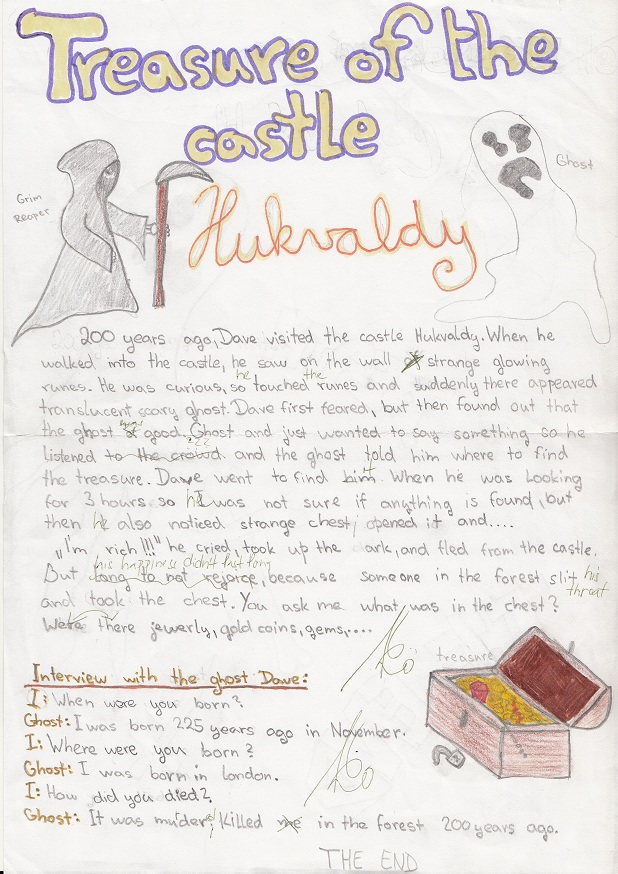 Treasure of the
castle
Hukvaldy
Grim
Reaper
Ghost
200 years ago, Dave visited the castle Hukvaldy. When he
walked into the castle, he saw on the wall strange glowing
runes. He was curious, so he touched the runes and suddenly there appeared
translucent scary ghost. Dave first feared, but then found out that
the ghost good. Ghost and just wanted to say something so he
listened to the crowd and the ghost told him where to find
the treasure. Dave went to find it. When he was looking
for 3 hours so he was not sure if anything is found, but
then he also noticed strange chest, opened it and....
„I'm rich!!!" he cried, took up the ark, and fled from the castle.
his happiness didn't last long
But long to not rejoice, because someone in the forest slit his
throat
and took the chest. You ask me what was in the chest?
Were there jewerly, gold coins, gems,....
treasure
Interview with the ghost Dave:
I: When were you born?
Ghost: I was born 225 years ago in November.
I: Where were you born?
Ghost: I was born in London.
I: How did you died?
Ghost: It was murder, killed me in the forest 200 years ago.
THE END